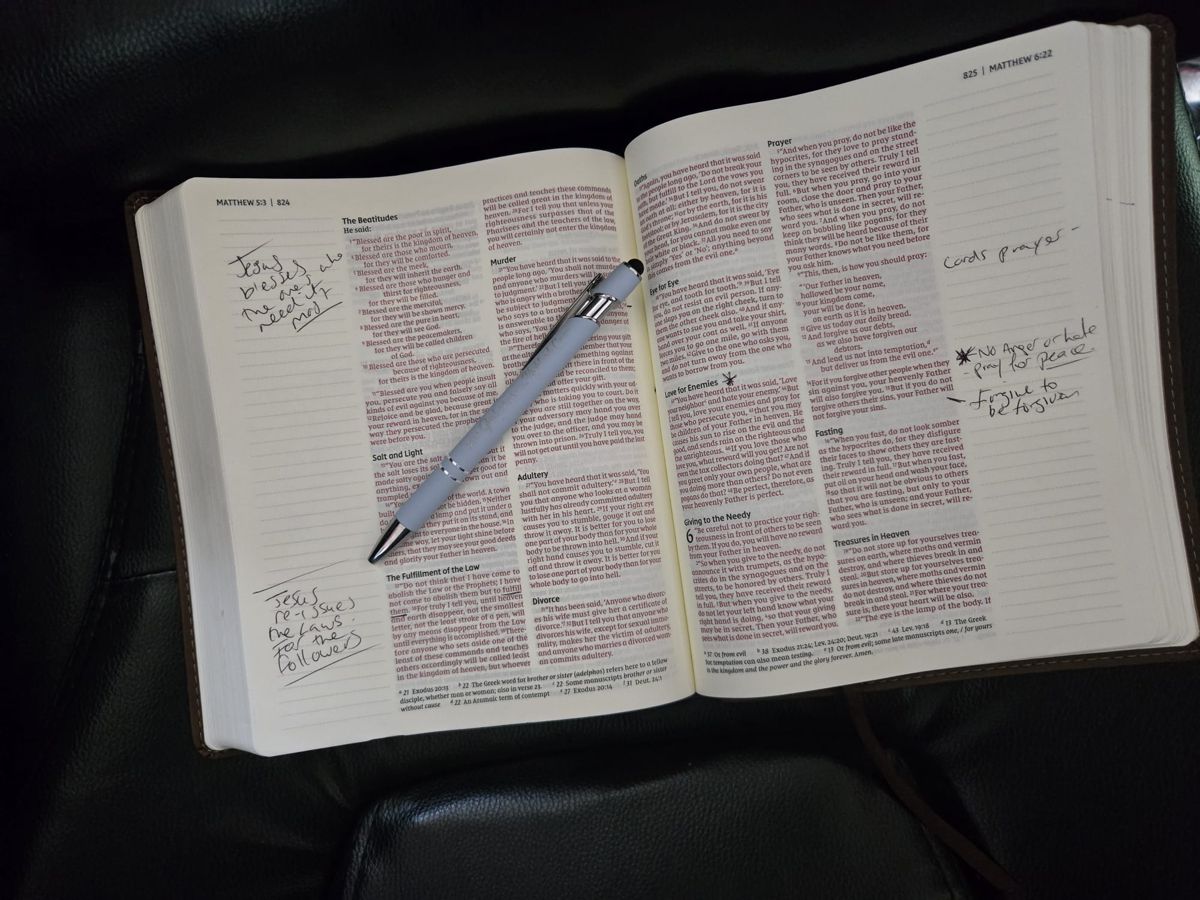 MATTHEW 5:3 | 824
Jesus
blesses
the ones who
need it
most
Jesus
re-issues
the Laws.
For the
Followers
The Beatitudes
He said:
3"Blessed are the poor in spirit,
for theirs is the kingdom of heaven.
4Blessed are those who mourn,
for they will be comforted.
5Blessed are the meek,
for they will inherit the earth.
6Blessed are those who hunger and
thirst for righteousness,
for they will be filled.
7Blessed are the merciful,
for they will be shown mercy.
8Blessed are the pure in heart,
for they will see God.
9Blessed are the peacemakers,
for they will be called children
of God.
10Blessed are those who are persecuted
because of righteousness,
for theirs is the kingdom of heaven.
11"Blessed are you when people insult
you, persecute you and falsely say all
kinds of evil against you because of me.
12Rejoice and be glad, because great is
your reward in heaven, for in the same
way they persecuted the prophets who
were before you.
Salt and Light
13"You are the salt of the earth. But if
the salt loses its
made salty again?
anything, except
trampled
14"You are the light of the world. A town
built be hidden. 15Neither
a lamp and put it under a
they put it on its stand, and
to everyone in the house. 16In
way, let your light shine before
others, that they may see your good deeds
and glorify your Father in heaven.
The Fulfillment of the Law
17"Do not think that I have come to
abolish the Law or the Prophets; I have
not come to abolish them but to fulfill
them. 18For truly I tell you, until heaven
and earth disappear, not the smallest
letter, not the least stroke of a pen, will
by any means disappear from the Law
until everything is accomplished. 19There-
fore anyone who sets aside one of the
least of these commands and teaches
others accordingly will be called least
in the kingdom of heaven, but whoever
practices and teaches these commands
will be called great in the kingdom of
heaven. 20For I tell you that unless your
righteousness surpasses that of the
Pharisees and the teachers of the law,
you will certainly not enter the kingdom
of heaven.
Murder
21"You have heard that it was said to the
people long ago, 'You shall not murder,
and anyone who murders will be
to judgment.' 22But I tell you
who is angry with a brother
be subject to judgment.
who says to a brother
is answerable to the
who says, 'You
the fire of hell.
23"Therefore, offering your gift
at the altar remember that your
something against
front
reconciled to them;
offer your gift.
quickly with your ad-
who is taking you to court. Do
you are still together on the way,
to the judge, and the judge may hand
you over to the officer, and you may be
thrown into prison. 26Truly I tell you, you
will not get out until you have paid the last
penny.
Adultery
27"You have heard that it was said, 'You
shall not commit adultery.' 28But I tell
you that anyone who looks at a woman
lustfully has already committed adultery
with her in his heart. 29If your right eye
causes you to stumble, gouge it out and
throw it away. It is better for you to lose
one part of your body than for your whole
body to be thrown into hell. 30And if your
right hand causes you to stumble, cut it
off and throw it away. It is better for you
to lose one part of your body than for your
whole body to go into hell.
Divorce
31"It has been said, 'Anyone who divorc-
es his wife must give her a certificate of
divorce.' 32But I tell you that anyone who
divorces his wife, except for sexual immo-
rality, makes her the victim of adultery,
and anyone who marries a divorced wom-
an commits adultery.
a 21 Exodus 20:13 b 22 The Greek word for brother or sister (adelphos) refers here to a fellow
disciple, whether man or woman; also in verse 23. c 22 Some manuscripts brother or sister
without cause d 22 An Aramaic term of contempt e 27 Exodus 20:14 f 31 Deut. 24:1
825 | MATTHEW 6:22
Oaths
33"Again, you have heard that it was said
to the people long ago, 'Do not break your
oath, but fulfill to the Lord the vows you
have made.' 34But I tell you, do not swear
an oath at all: either by heaven, for it is
God's throne; 35or by the earth, for it is his
footstool; or by Jerusalem, for it is the city
of the Great King. 36And do not swear by
your head, for you cannot make even one
hair white or black. 37All you need to say
is simply 'Yes' or 'No'; anything beyond
this comes from the evil one.
Eye for Eye
38"You have heard that it was said, 'Eye
for eye, and tooth for tooth.' 39But I tell
you, do not resist an evil person. If any-
one slaps you on the right cheek, turn to
them the other cheek also. 40And if any-
one wants to sue you and take your shirt,
hand over your coat as well. 41If anyone
forces you to go one mile, go with them
two miles. 42Give to the one who asks you,
and do not turn away from the one who
wants to borrow from you.
Love for Enemies
43"You have heard that it was said, 'Love
your neighbor and hate your enemy.' 44But
I tell you, love your enemies and pray for
those who persecute you, 45that you may
be children of your Father in heaven. He
causes his sun to rise on the evil and the
good, and sends rain on the righteous and
the unrighteous. 46If you love those who
love you, what reward will you get? Are not
even the tax collectors doing that? 47And if
you greet only your own people, what are
you doing more than others? Do not even
pagans do that? 48Be perfect, therefore, as
your heavenly Father is perfect.
Giving to the Needy
6 "Be careful not to practice your righ-
teousness in front of others to be seen
by them. If you do, you will have no reward
from your Father in heaven.
2"So when you give to the needy, do not
announce it with trumpets, as the hypo-
crites do in the synagogues and on the
streets, to be honored by others. Truly I
tell you, they have received their reward
in full. 3But when you give to the needy,
do not let your left hand know what your
right hand is doing, 4so that your giving
may be in secret. Then your Father, who
sees what is done in secret, will reward you.
Prayer
5"And when you pray, do not be like the
hypocrites, for they love to pray stand-
ing in the synagogues and on the street
corners to be seen by others. Truly I tell
you, they have received their reward in
full. 6But when you pray, go into your
room, close the door and pray to your
Father, who is unseen. Then your Father,
who sees what is done in secret, will re-
ward you. 7And when you pray, do not
keep on babbling like pagans, for they
think they will be heard because of their
many words. 8Do not be like them, for
your Father knows what you need before
you ask him.
9"This, then, is how you should pray:
"'Our Father in heaven,
hallowed be your name,
10your kingdom come,
your will be done,
on earth as it is in heaven.
11Give us today our daily bread.
12And forgive us our debts,
as we also have forgiven our
debtors.
13And lead us not into temptation,
but deliver us from the evil one.'
14For if you forgive other people when they
sin against you, your heavenly Father
will also forgive you. 15But if you do not
forgive others their sins, your Father will
not forgive your sins.
Fasting
16"When you fast, do not look somber
as the hypocrites do, for they disfigure
their faces to show others they are fast-
ing. Truly I tell you, they have received
their reward in full. 17But when you fast,
put oil on your head and wash your face,
18so that it will not be obvious to others
that you are fasting, but only to your
Father, who is unseen; and your Father,
who sees what is done in secret, will re-
ward you.
Treasures in Heaven
19"Do not store up for yourselves trea-
sures on earth, where moths and vermin
destroy, and where thieves break in and
steal. 20But store up for yourselves trea-
sures in heaven, where moths and vermin
do not destroy, and where thieves do not
break in and steal. 21For where your trea-
sure is, there your heart will be also.
22"The eye is the lamp of the body. If
a 37 Or from evil b 38 Exodus 21:24; Lev. 24:20; Deut. 19:21 c 43 Lev. 19:18 d 13 The Greek
for temptation can also mean testing. e 13 Or from evil; some late manuscripts one, / for yours
is the kingdom and the power and the glory forever. Amen.
Lords prayer -
* No Anger or hate
- pray for peace
- Forgive to
be forgiven